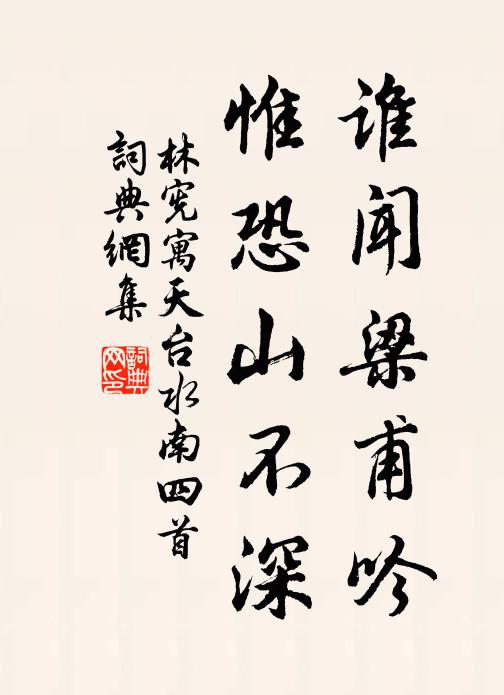 谁闻梁甫吟
惟恐山不深
林宪寓天台水南四首
詞典網集
詞典
网印